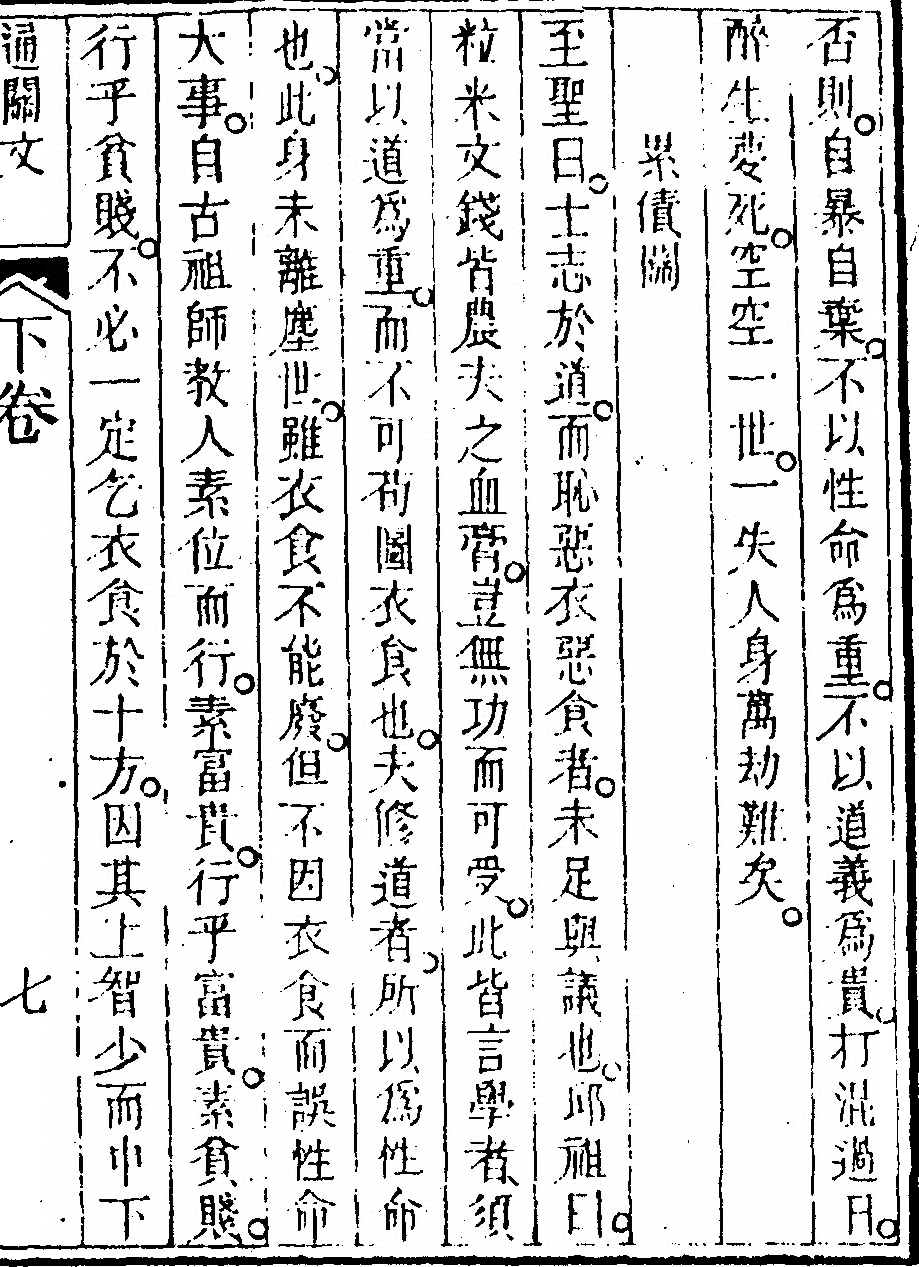 否則。自暴自棄。不以性命爲重。不以道義爲貴。打混過日。
醉生夢死。空空一世。一失人身萬劫難矣。
累債關
至聖曰。士志於道。而恥惡衣惡食者。未足與議也。邱祖曰。
粒米文錢皆農夫之血膏。豈無功而可受。此皆言學者須
當以道爲重。而不可苟圖衣食也。夫修道者。所以爲性命
也。此身未離塵世。雖衣食不能廢。但不因衣食而誤性命
大事。自古祖師教人素位而行。素富貴。行乎富貴。素貧賤。
行乎貧賤。不必一定乞衣食於十方。因其上智少而中下
通關文 下卷 七